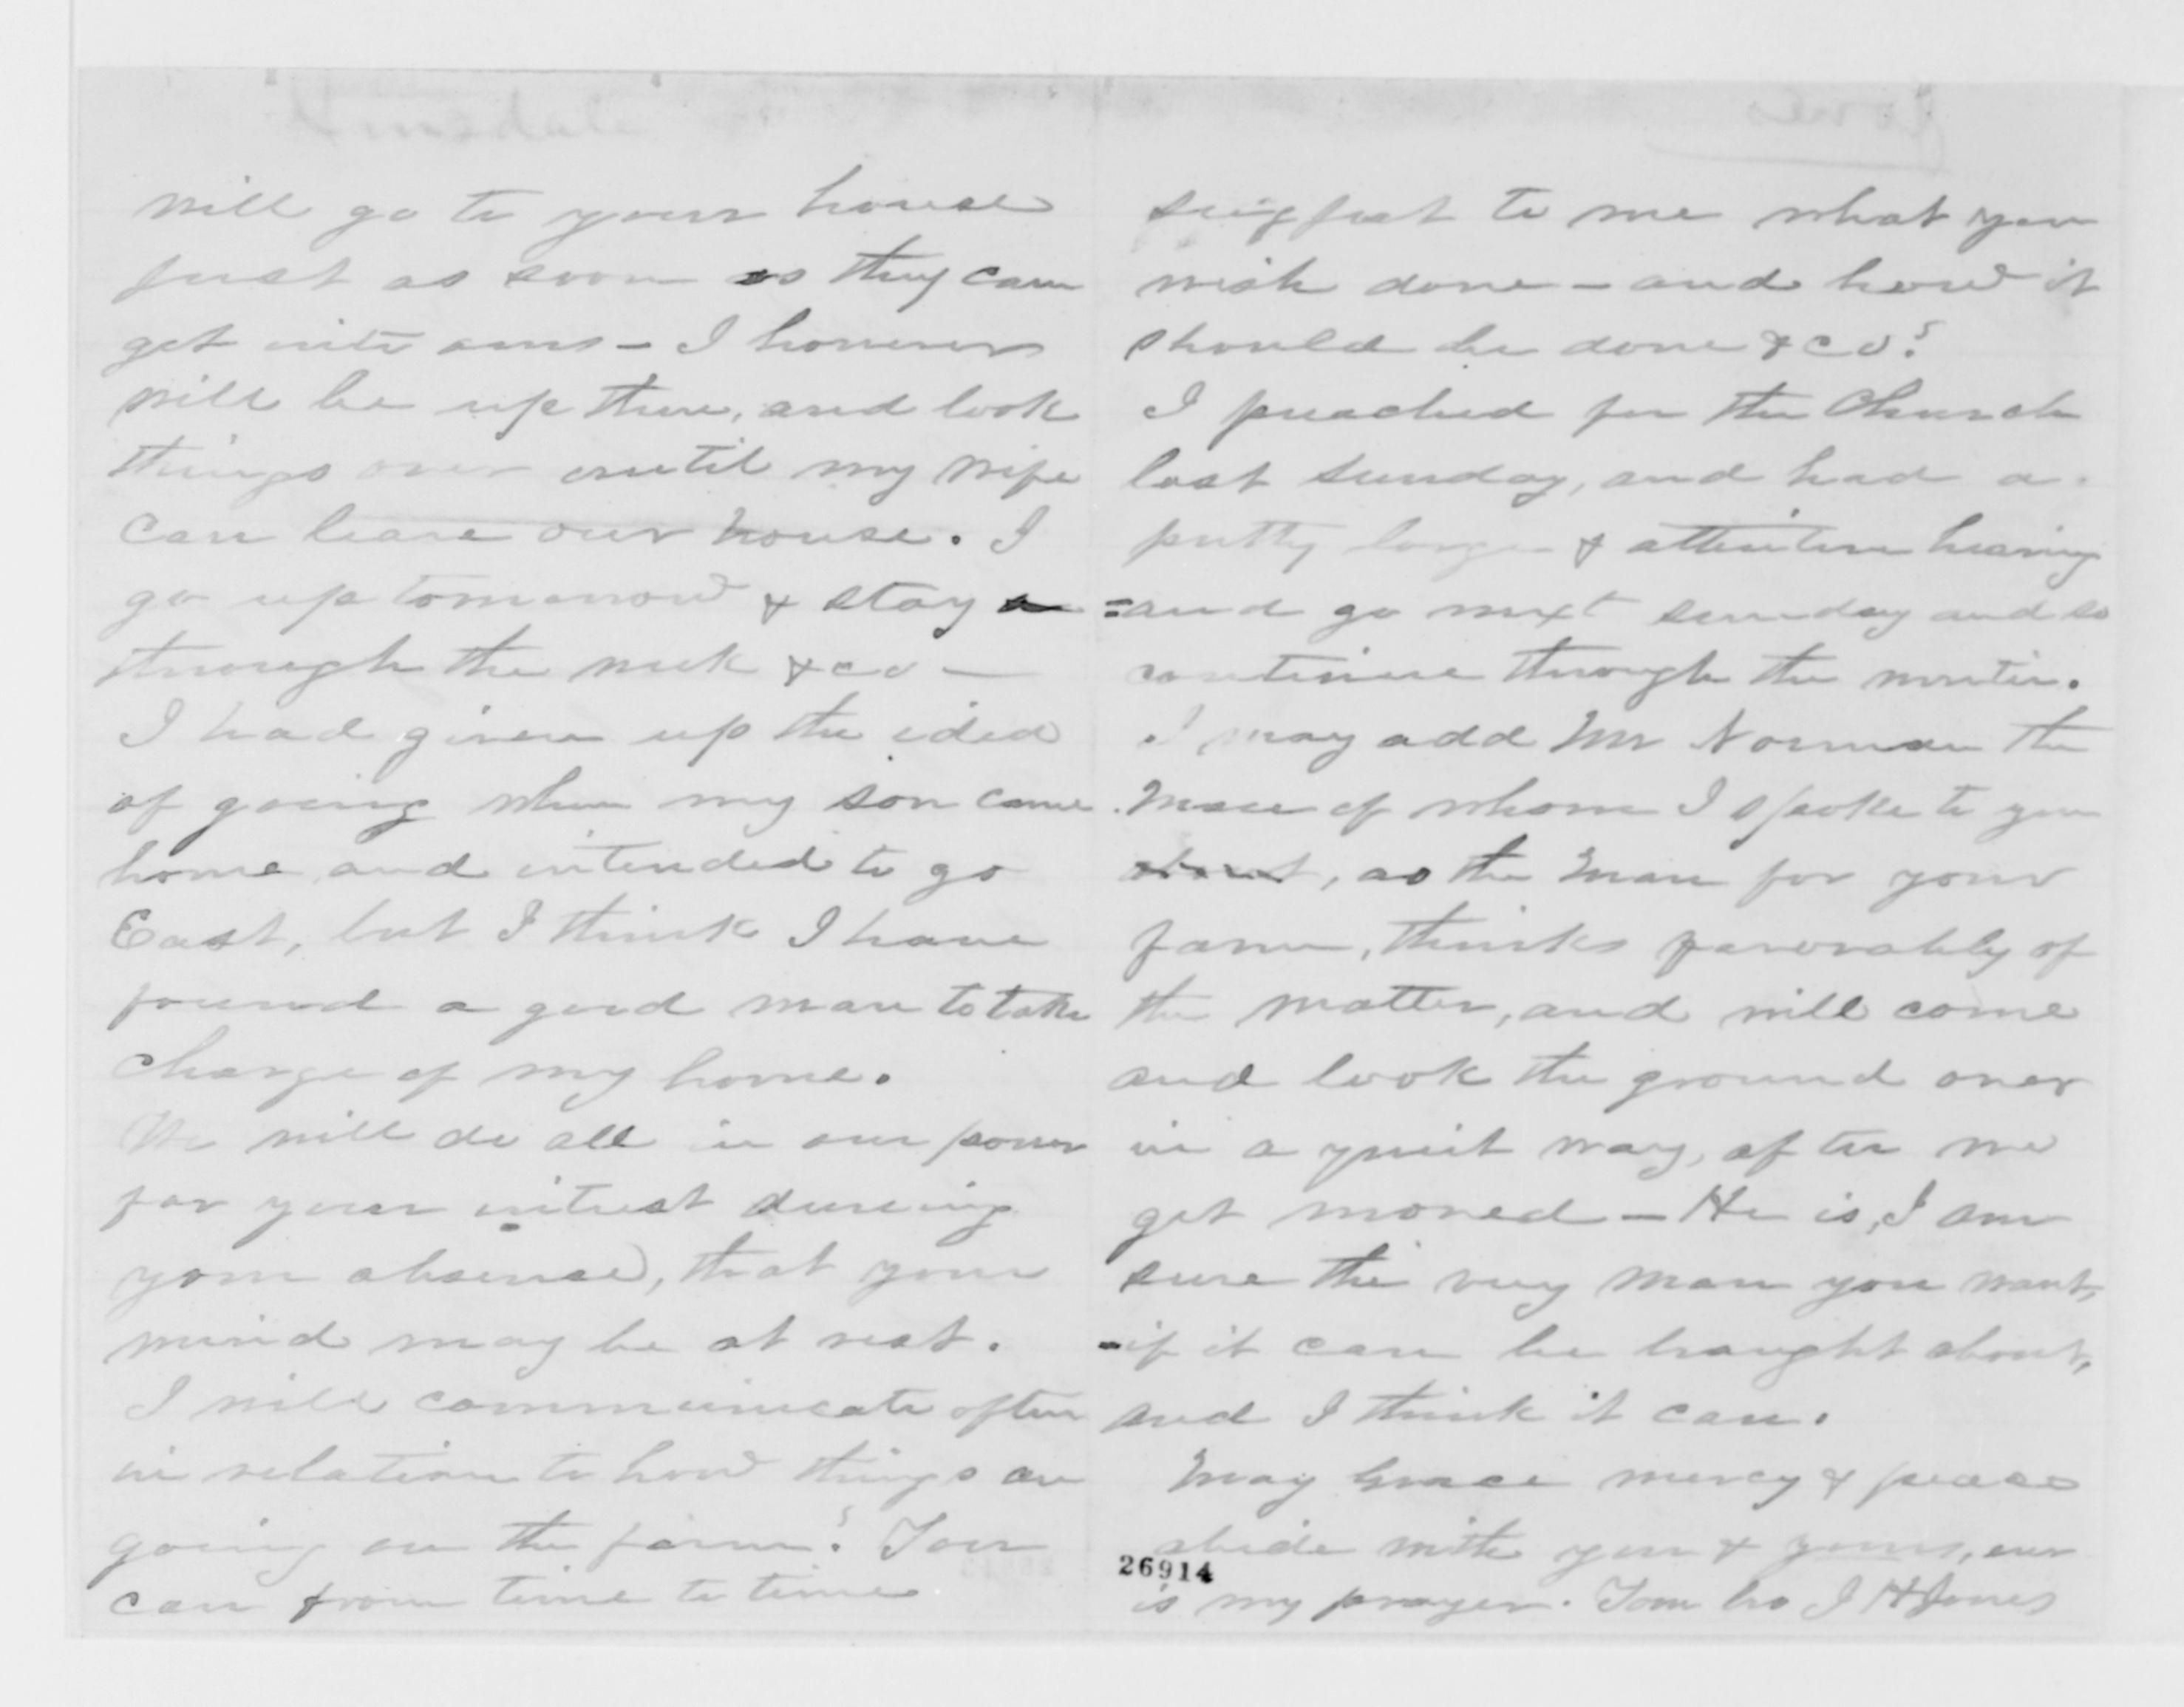 will go to your house
just as soon as they can
get into ours - I however
will be up there, and look
things over until my wife
can leave our house. I
go up tomorrow & stay
through the week & co -
I had given up the idea
of going when my son came
home and intended to go
East, but I think I have
found a good man to take
charge of my home.
We will do all in our power
for your intrest dureing
your absence, that your
mind may be at rest.
I will communicate often
in relation to how things are
going on the farm? You
can from time to time
suggest to me what you
wish done - and how it
should be done & co?
I preached for the Church
last Sunday, and had a
pretty large & attentive hearing
and go next Sunday and so
continue through the winter.
I may add Mr Norman the
man of whom I spoke to you
about, as the man for your
farm, thinks favorably of
the matter, and will come
and look the ground over
in a quiet way, after we
get moved - He is, I am
sure the very man you want,
if it can be braught about,
and I think it can.
May Grace mercy & peace
abide with you & yours, ever
26914
is my prayer. Your bro J H Jones